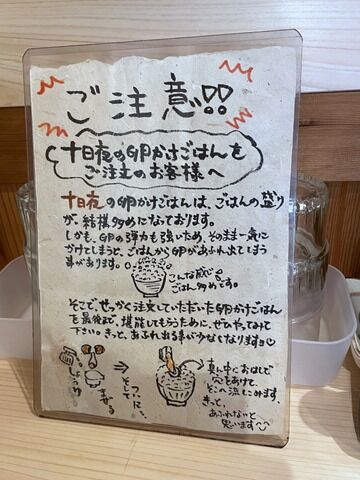 ご注意!!
十日夜の卵かけごはんを
ご注文のお客様へ
十日夜の卵かけごはんは、ごはんの盛り
が、結構多めになっております。
しかも、卵の弾力も強いため、そのまま一気に
かけてしまうと、ごはんから卵があふれ出てしまう
事があります。
こんな感じで
ごはん多めです。
そこで、せっかく注文していただいた卵かけごはん
を最後まで、堪能してもらうために、ぜひやってみて
下さい。きっと、あふれ出る事が少なくなりますョ
しょうゆ
まぜる
そして
ついに、、
真ん中におはしで
穴をあけて、
そこへ流しこみます。
きっと、
あふれないと
思います